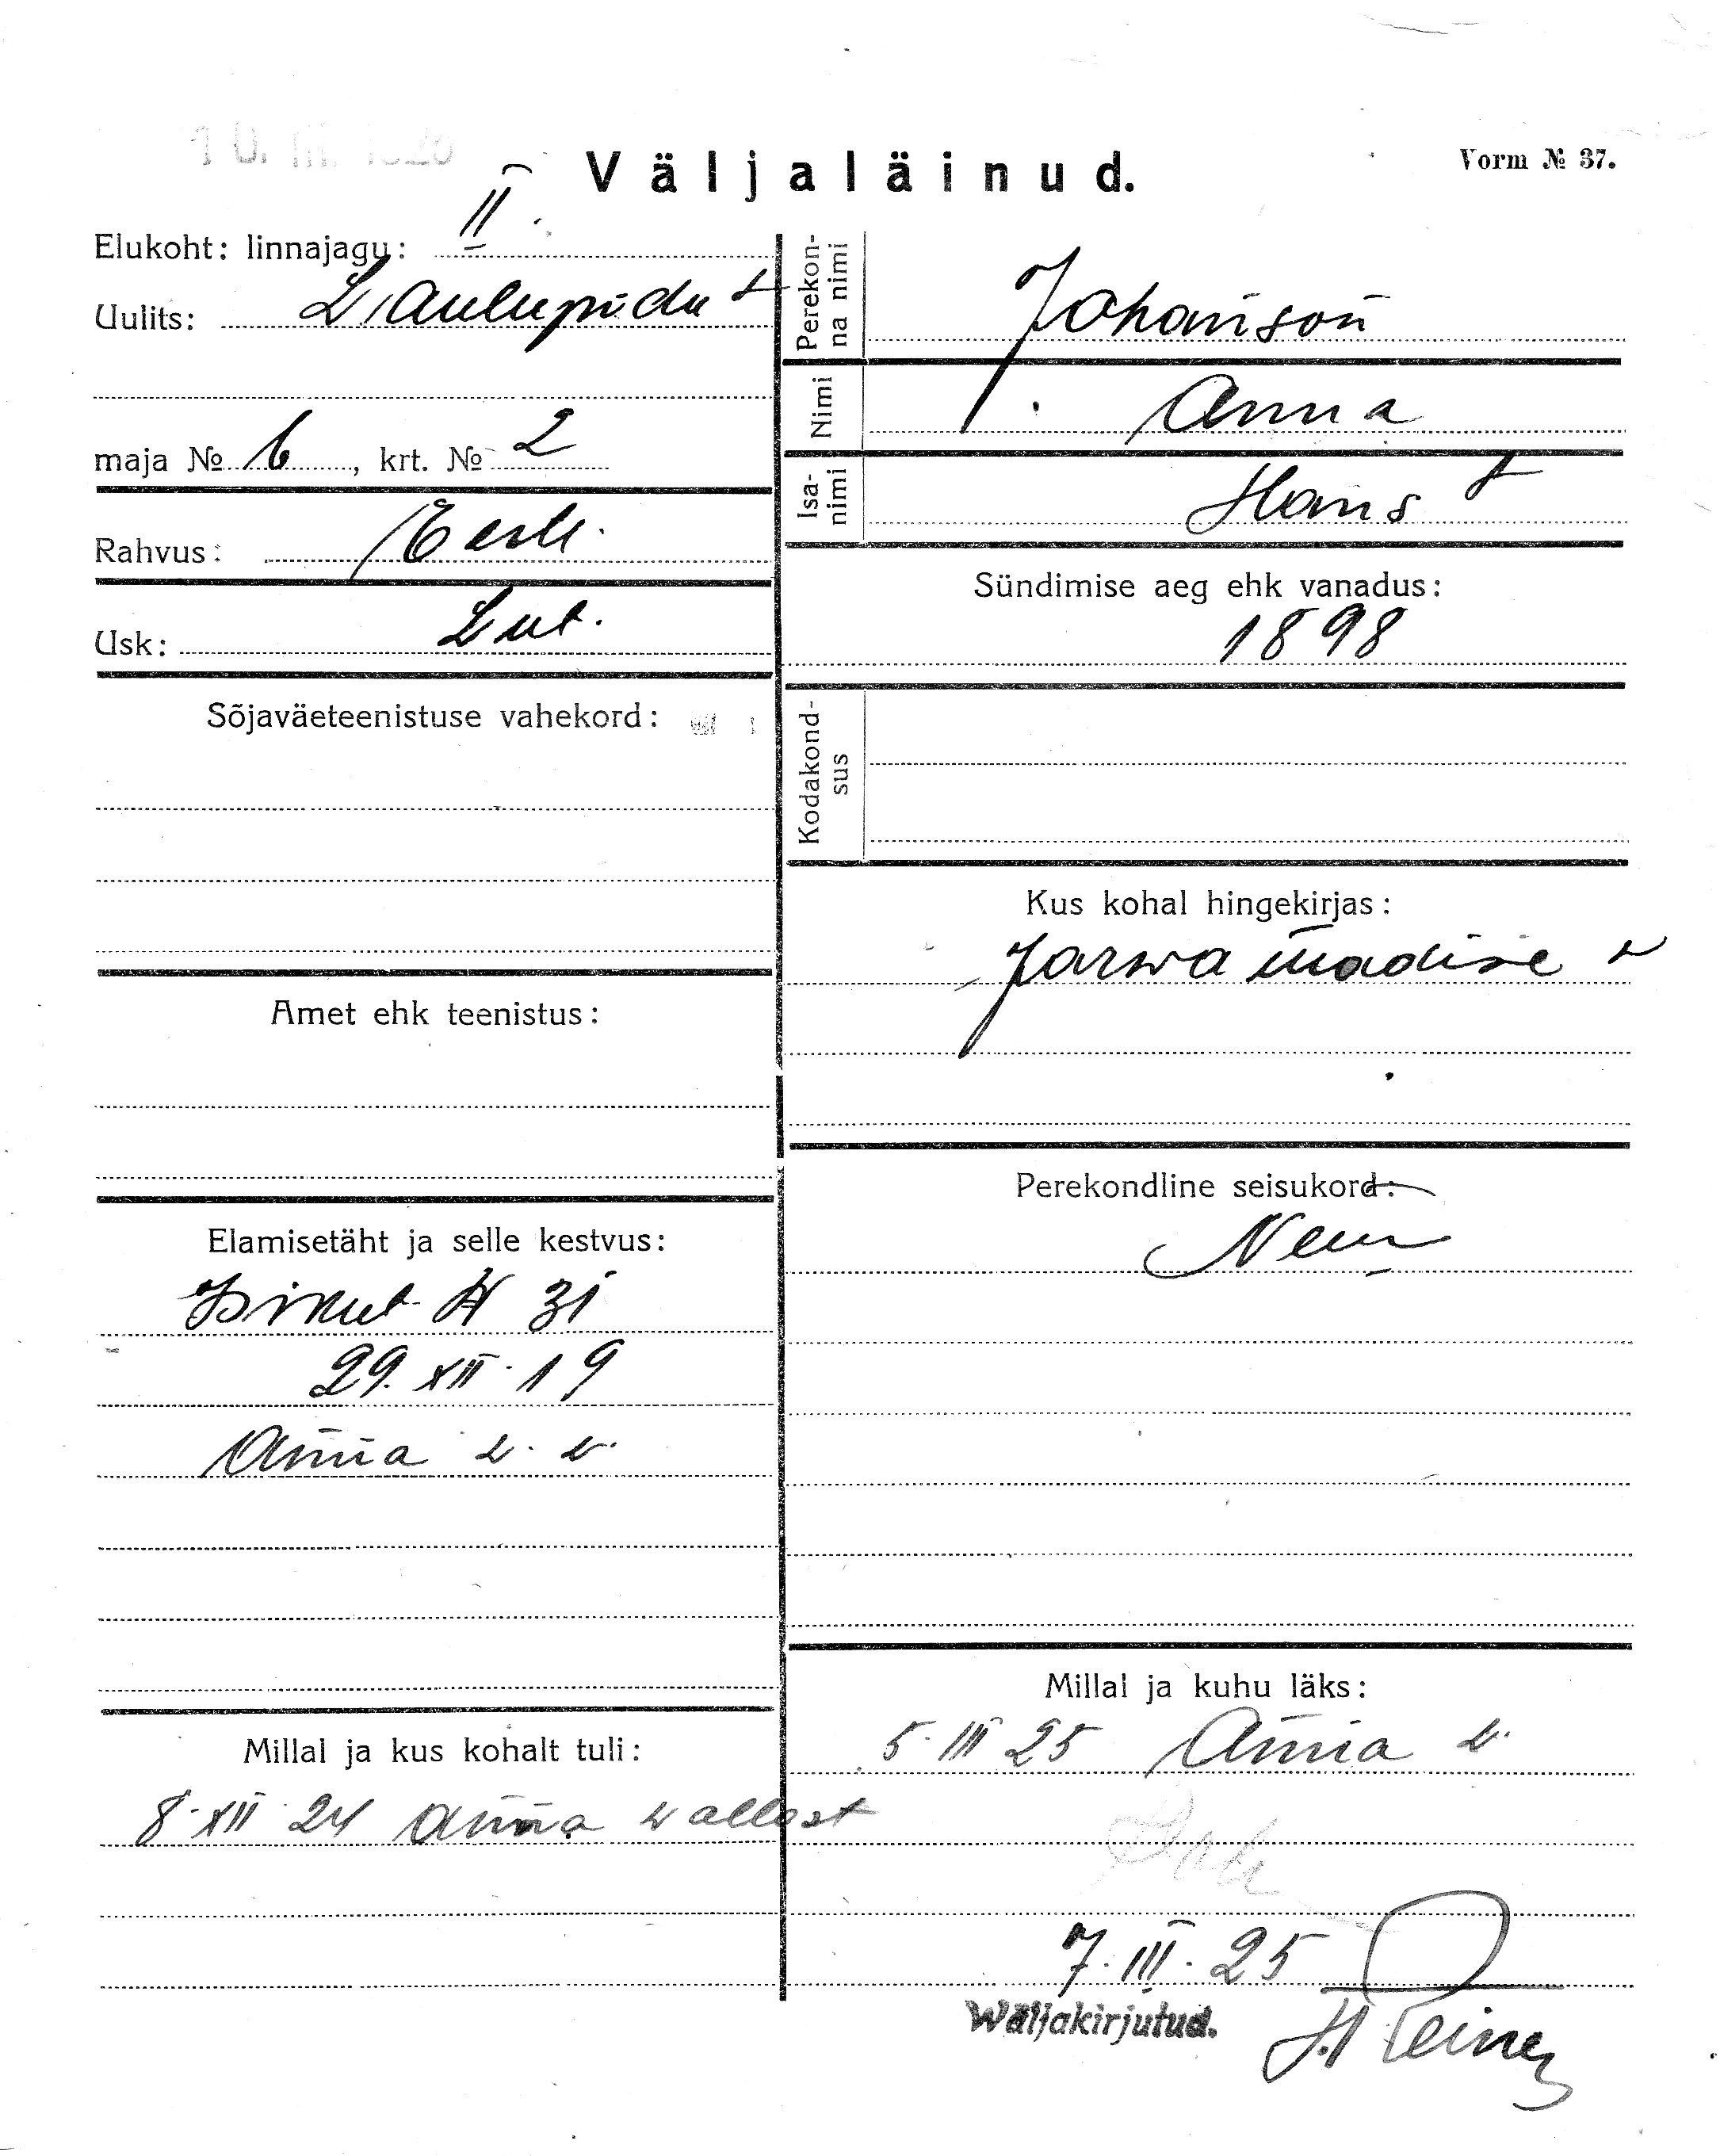 10. III. 1925
Väljaläinud.
Vorm № 37.
Elukoht: linnajagu: II
Uulits: Laulupidu t
maja № 6, krt. № 2
Rahvus: Eesti.
Usk: Lut.
Sõjaväeteenistuse vahekord:
Amet ehk teenistus:
Elamisetäht ja selle kestvus:
Isikut № 31
29. XII. 19
Anna v. v.
Millal ja kus kohalt tuli:
8. XII 24 Anna wallast
Perekon-
na nimi
Johanson
Nimi
Anna
Isa-
nimi
Hans t
Sündimise aeg ehk vanadus:
1898
Kodakond-
sus
Kus kohal hingekirjas:
Jarwa madise v
Perekondline seisukord:
Neiu
Millal ja kuhu läks:
5. III 25 Anna v.
7. III. 25
Wäljakirjutud.